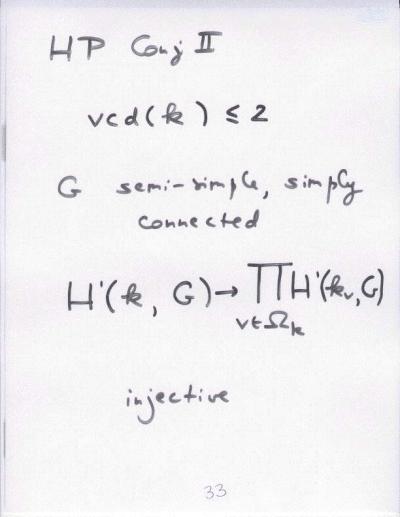 HP Conj II
vcd(k) ≤ 2
G semi-simple, simply
connected
H¹(k, G) → ∏ H¹(kv, G)
v∈Ωk
injective
33